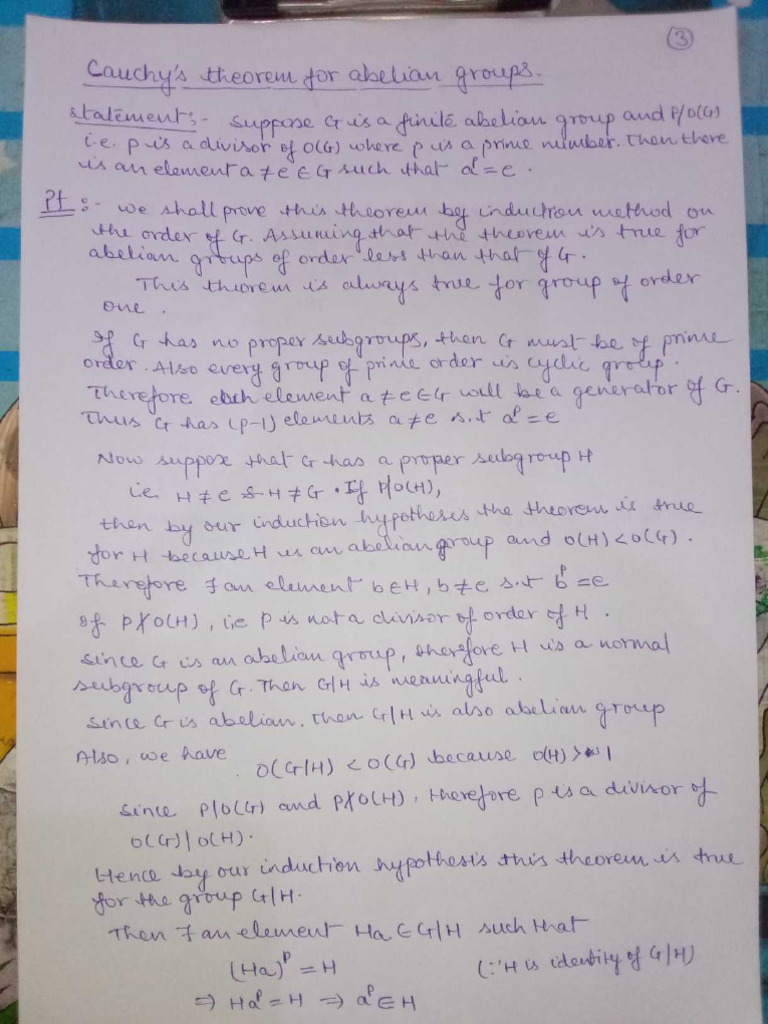 3
Cauchy's theorem for abelian groups.
Statement:- Suppose G is a finite abelian group and P/O(G)
i.e. p is a divisor of O(G) where p is a prime number. Then there
is an element a ≠ e ∈ G such that aᵖ = e.
Pf :- we shall prove this theorem by induction method on
the order of G. Assuming that the theorem is true for
abelian groups of order less than that of G.
This theorem is always true for group of order
one.
If G has no proper subgroups, then G must be of prime
order. Also every group of prime order is cyclic group.
Therefore each element a ≠ e ∈ G will be a generator of G.
Thus G has (p-1) elements a ≠ e s.t aᵖ = e
Now suppose that G has a proper subgroup H
i.e. H ≠ e & H ≠ G. If P/O(H),
then by our induction hypothesis the theorem is true
for H because H is an abelian group and O(H) < O(G).
Therefore ∃ an element b ∈ H, b ≠ e s.t bᵖ = e
If P∤O(H), i.e P is not a divisor of order of H.
Since G is an abelian group, therefore H is a normal
subgroup of G. Then G/H is meaningful.
Since G is abelian. Then G/H is also abelian group
Also, we have
O(G/H) < O(G) because O(H) > 1
Since P/O(G) and P∤O(H), therefore p is a divisor of
O(G)/O(H).
Hence by our induction hypothesis this theorem is true
for the group G/H.
Then ∃ an element Ha ∈ G/H such that
(Ha)ᵖ = H (∵ H is identity of G/H)
⇒ Haᵖ = H ⇒ aᵖ ∈ H